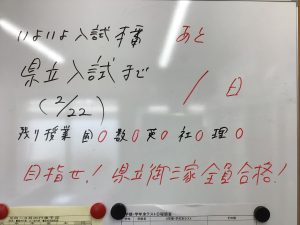 いよいよ入試本番 あと
県立入試まで 1日
(2/22)
残り授業 国0 数0 英0 社0 理0
目指せ！県立御三家全員合格！